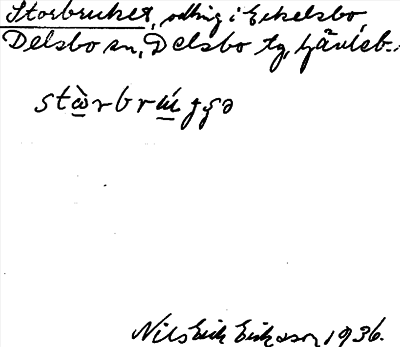 Storbruket, odling i Eckelsbo
Delsbo sn, Delsbo tg, Gävleb.
stὼrbrɯ́gga
Nils Erik Eriksson 1936.